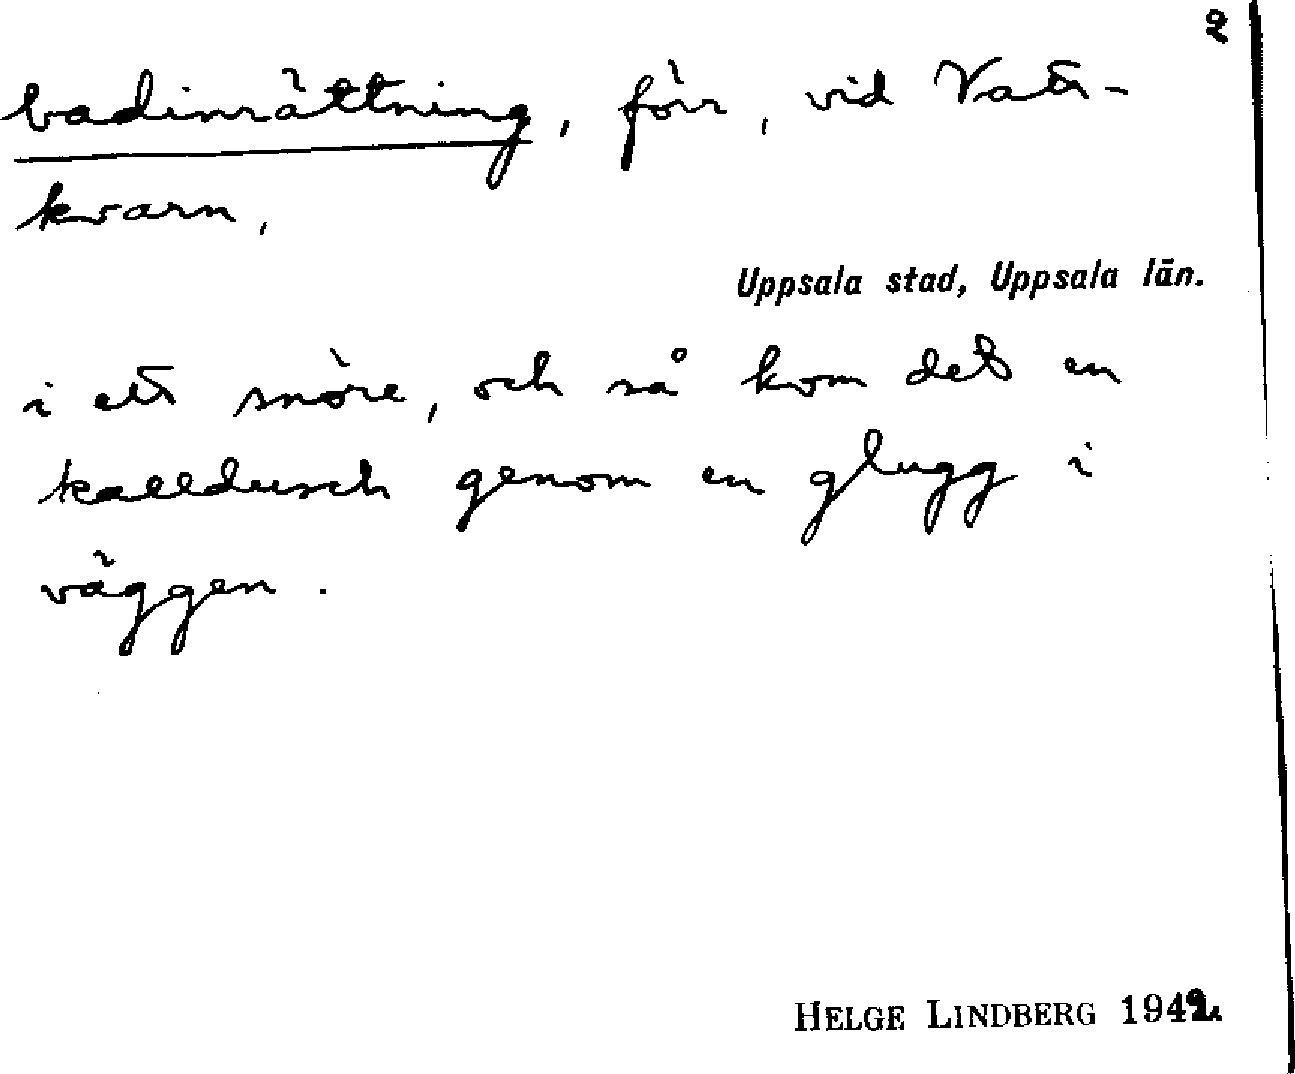 2
badinrättning, förr, vid Vatt-
kvarn,
Uppsala stad, Uppsala län.
i ett snöre, och så kom det en
kalldusch genom en glugg i
väggen.
HELGE LINDBERG 1942